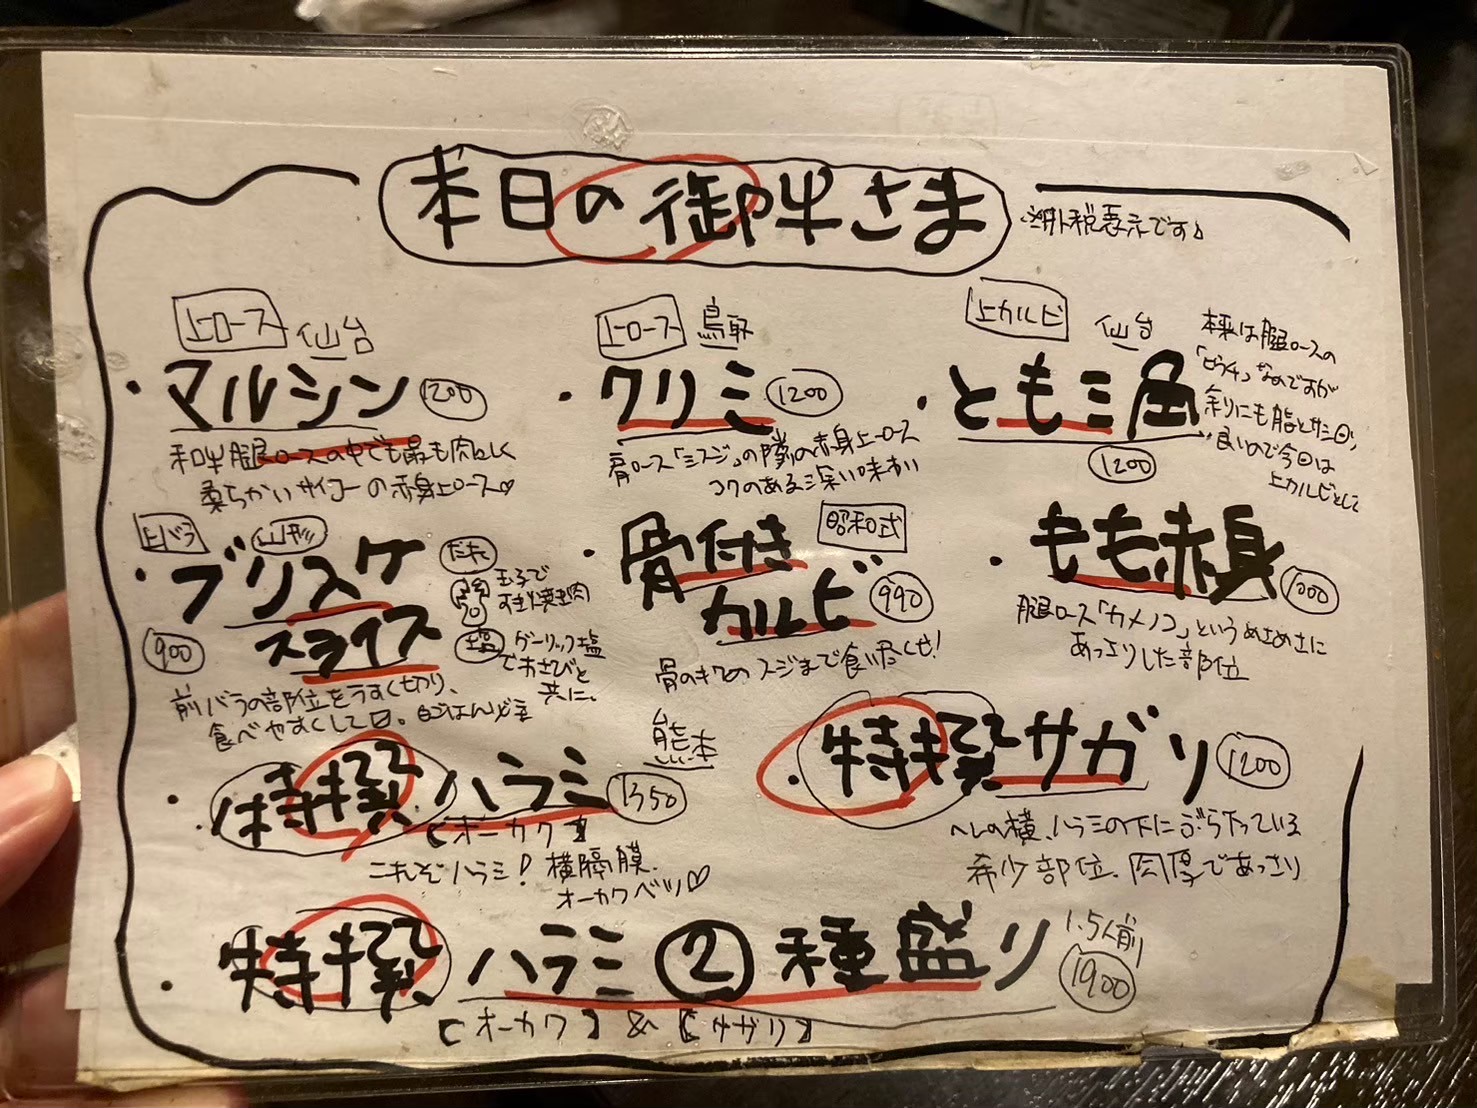 本日の御牛さま
外税表示です♪
上ロース 仙台
・マルシン 1200
和牛腿ロースの中でも最も肉らしく
柔らかいサイコーの赤身上ロース♡
上ロース 鳥取
・クリミ 1200
肩ロース「ミスジ」の隣の赤身上ロース
コクのある深い味わい
上カルビ 仙台
・とも三角
1200
本来は腿ロースの
「ヒウチ」なのですが
余りにも脂とサシ
良いので今日は
上カルビとして
上バラ 山形
・ブリスケ
スライス
900
たれ 玉子で
すき焼き肉
塩 ガーリック塩
でわさびと
共に。
前バラの部位をうすく切り、
食べやすくして□。白ごはんどま
・骨付き 昭和式
カルビ 990
骨のキワのスジまで食い尽くせ!
・もも赤身 1000
腿ロース「カメノコ」というめさめさに
あっさりした部位
熊本
・特撰ハラミ 1350
【オーカク】
これぞハラミ! 横隔膜、
オーカクベツ♡
・特撰サガリ 1200
ヘレの横、ハラミの下にぶら下っている
希少部位、肉厚であっさり
・特撰 ハラミ②種盛り 1.5人前
1900
【オーカク】&【サガリ】